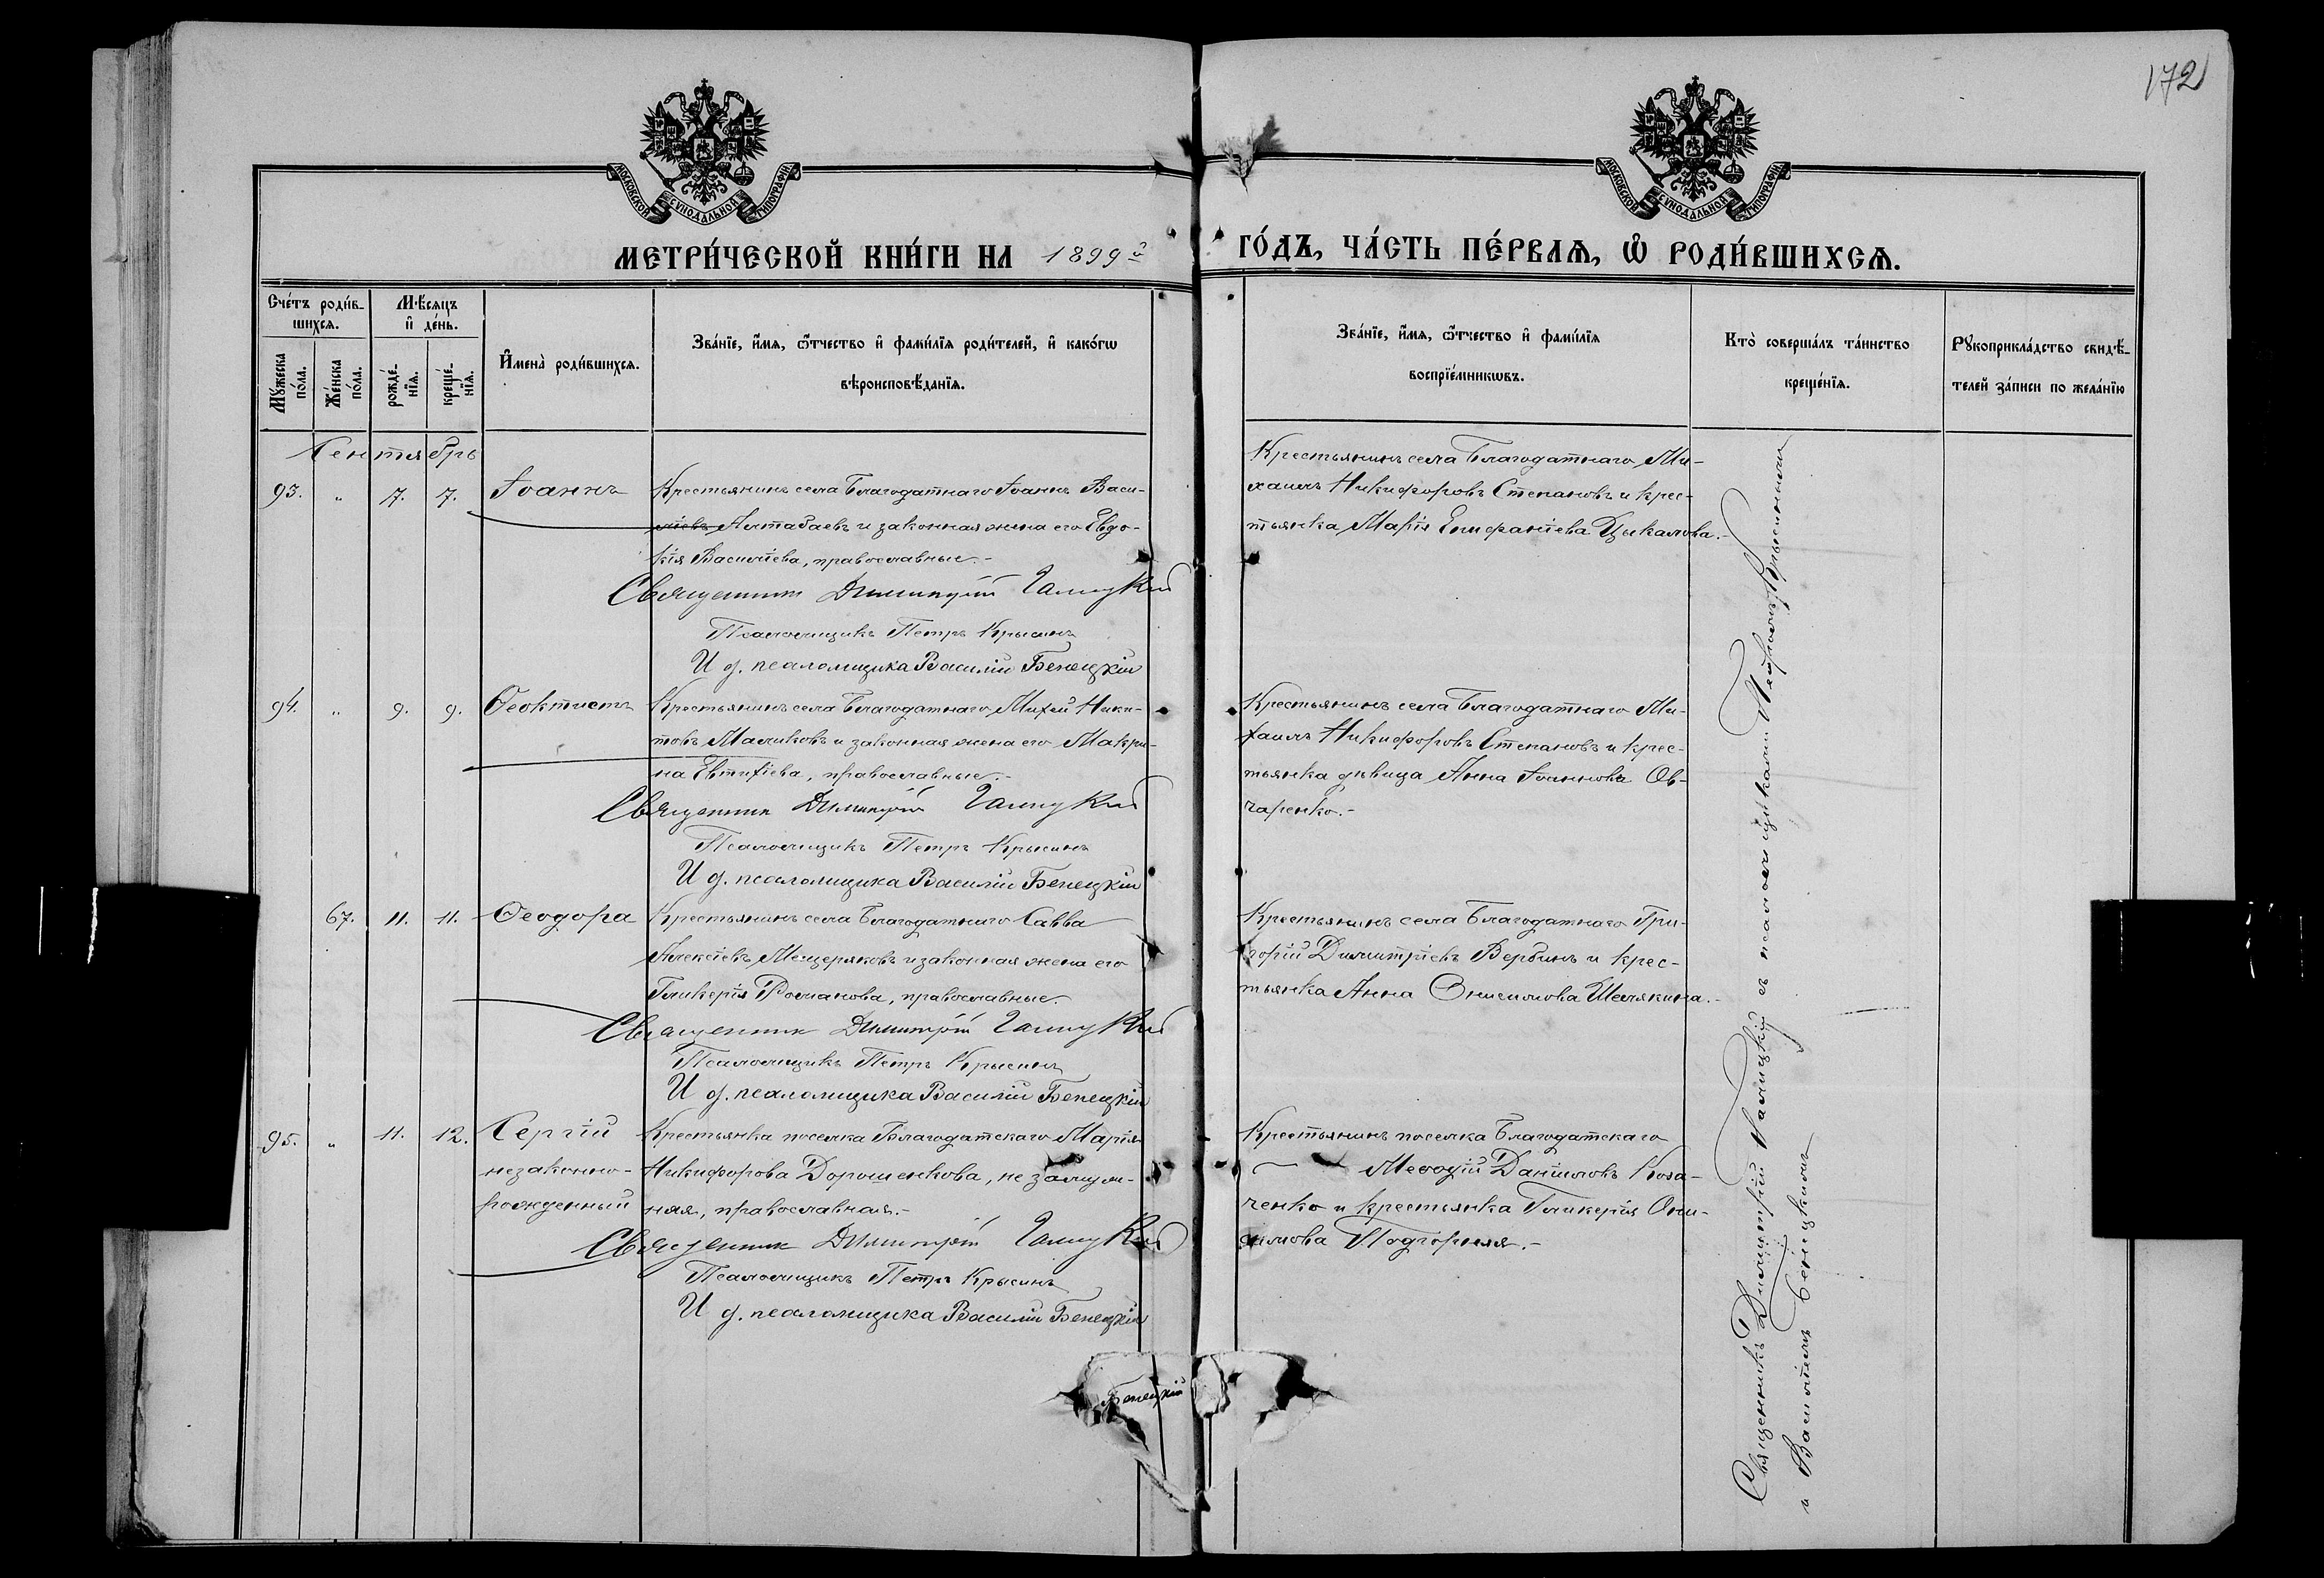 172
МОСКОВСКОЙ СУНОДАЛЬНОЙ ТИПОГРАФІИ
МОСКОВСКОЙ СУНОДАЛЬНОЙ ТИПОГРАФІИ
МЕТРИ́ЧЕСКОЙ КНИ́ГИ НА 1899й
ГО́ДЪ, ЧА́СТЬ ПЕ́РВАѦ, Ѡ҆ РОДИ́ВШИХСѦ.
Сче́тъ роди́в-
шихсѧ.
Мꙋ́жеска по́ла.
Же́нска по́ла.
Мѣ́сяцъ
и҆ де́нь.
рожде́-нїѧ.
креще́-нїѧ.
И҆мена̀ роди́вшихсѧ.
Зва́нїе, и҆́мѧ, ѻ҆́тчество и҆ фами́лїѧ роди́телей, и҆ како́гѡ
вѣроисповѣ́данїѧ.
Зва́нїе, и҆́мѧ, ѻ҆́тчество и҆ фами́лїѧ
воспрїе́мникѡвъ.
Кто̀ соверша́лъ та́инство
креще́нїѧ.
Рꙋкоприкла́дство свидѣ́-
телей за́писи по жела́нїю
Сентябрь
93. " 7. 7. Іоаннъ Крестьянинъ села Благодатнаго Іоаннъ Васи-
ліевъ Алтабаевъ и законная жена его Евдо-
кія Васильева, православные.-
Священникъ Димитрій Галицкій
Псаломщикъ Петръ Крысинъ
И д. псаломщика Василій Бенецкій
Крестьянинъ села Благодатнаго Ми-
хаилъ Никифоровъ Степановъ и крес-
тьянка Марія Епифаніева Цыкалова.-
94. " 9. 9. Ѳеоктистъ Крестьянинъ села Благодатнаго Михей Ники-
товъ Маликовъ и законная жена его Макри-
на Евтихіева, православные.-
Священникъ Димитрій Галицкій
Псаломщикъ Петръ Крысинъ
И д. псаломщика Василій Бенецкій
Крестьянинъ села Благодатнаго Ми-
хаилъ Никифоровъ Степановъ и крес-
тьянка дѣвица Анна Іоаннова Ов-
чаренко.-
67. 11. 11. Ѳеодора Крестьянинъ села Благодатнаго Савва
Алексіевъ Мещеряковъ и законная жена его
Гликерія Романова, православные.
Священникъ Димитрій Галицкій
Псаломщикъ Петръ Крысинъ
И д. псаломщика Василій Бенецкій
Крестьянинъ села Благодатнаго Гри-
горій Димитріевъ Вербинъ и крес-
тьянка Анна Онисимова Шелякина.-
95. " 11. 12. Сергій незаконно-рожденный
Крестьянка поселка Благодатскаго Марія
Никифорова Дорошенкова, не замуж-
няя, православная.-
Священникъ Димитрій Галицкій
Псаломщикъ Петръ Крысинъ
И д. псаломщика Василій Бенецкій
Крестьянинъ поселка Благодатскаго
Меѳодій Даніиловъ Коза-
ченко и крестьянка Гликерія Они-
симова Подгорняя.-
Бенецкій
Священникъ Димитрій Галицкій съ псаломщиками Петромъ Крысинымъ
и Василіемъ Бенецкимъ